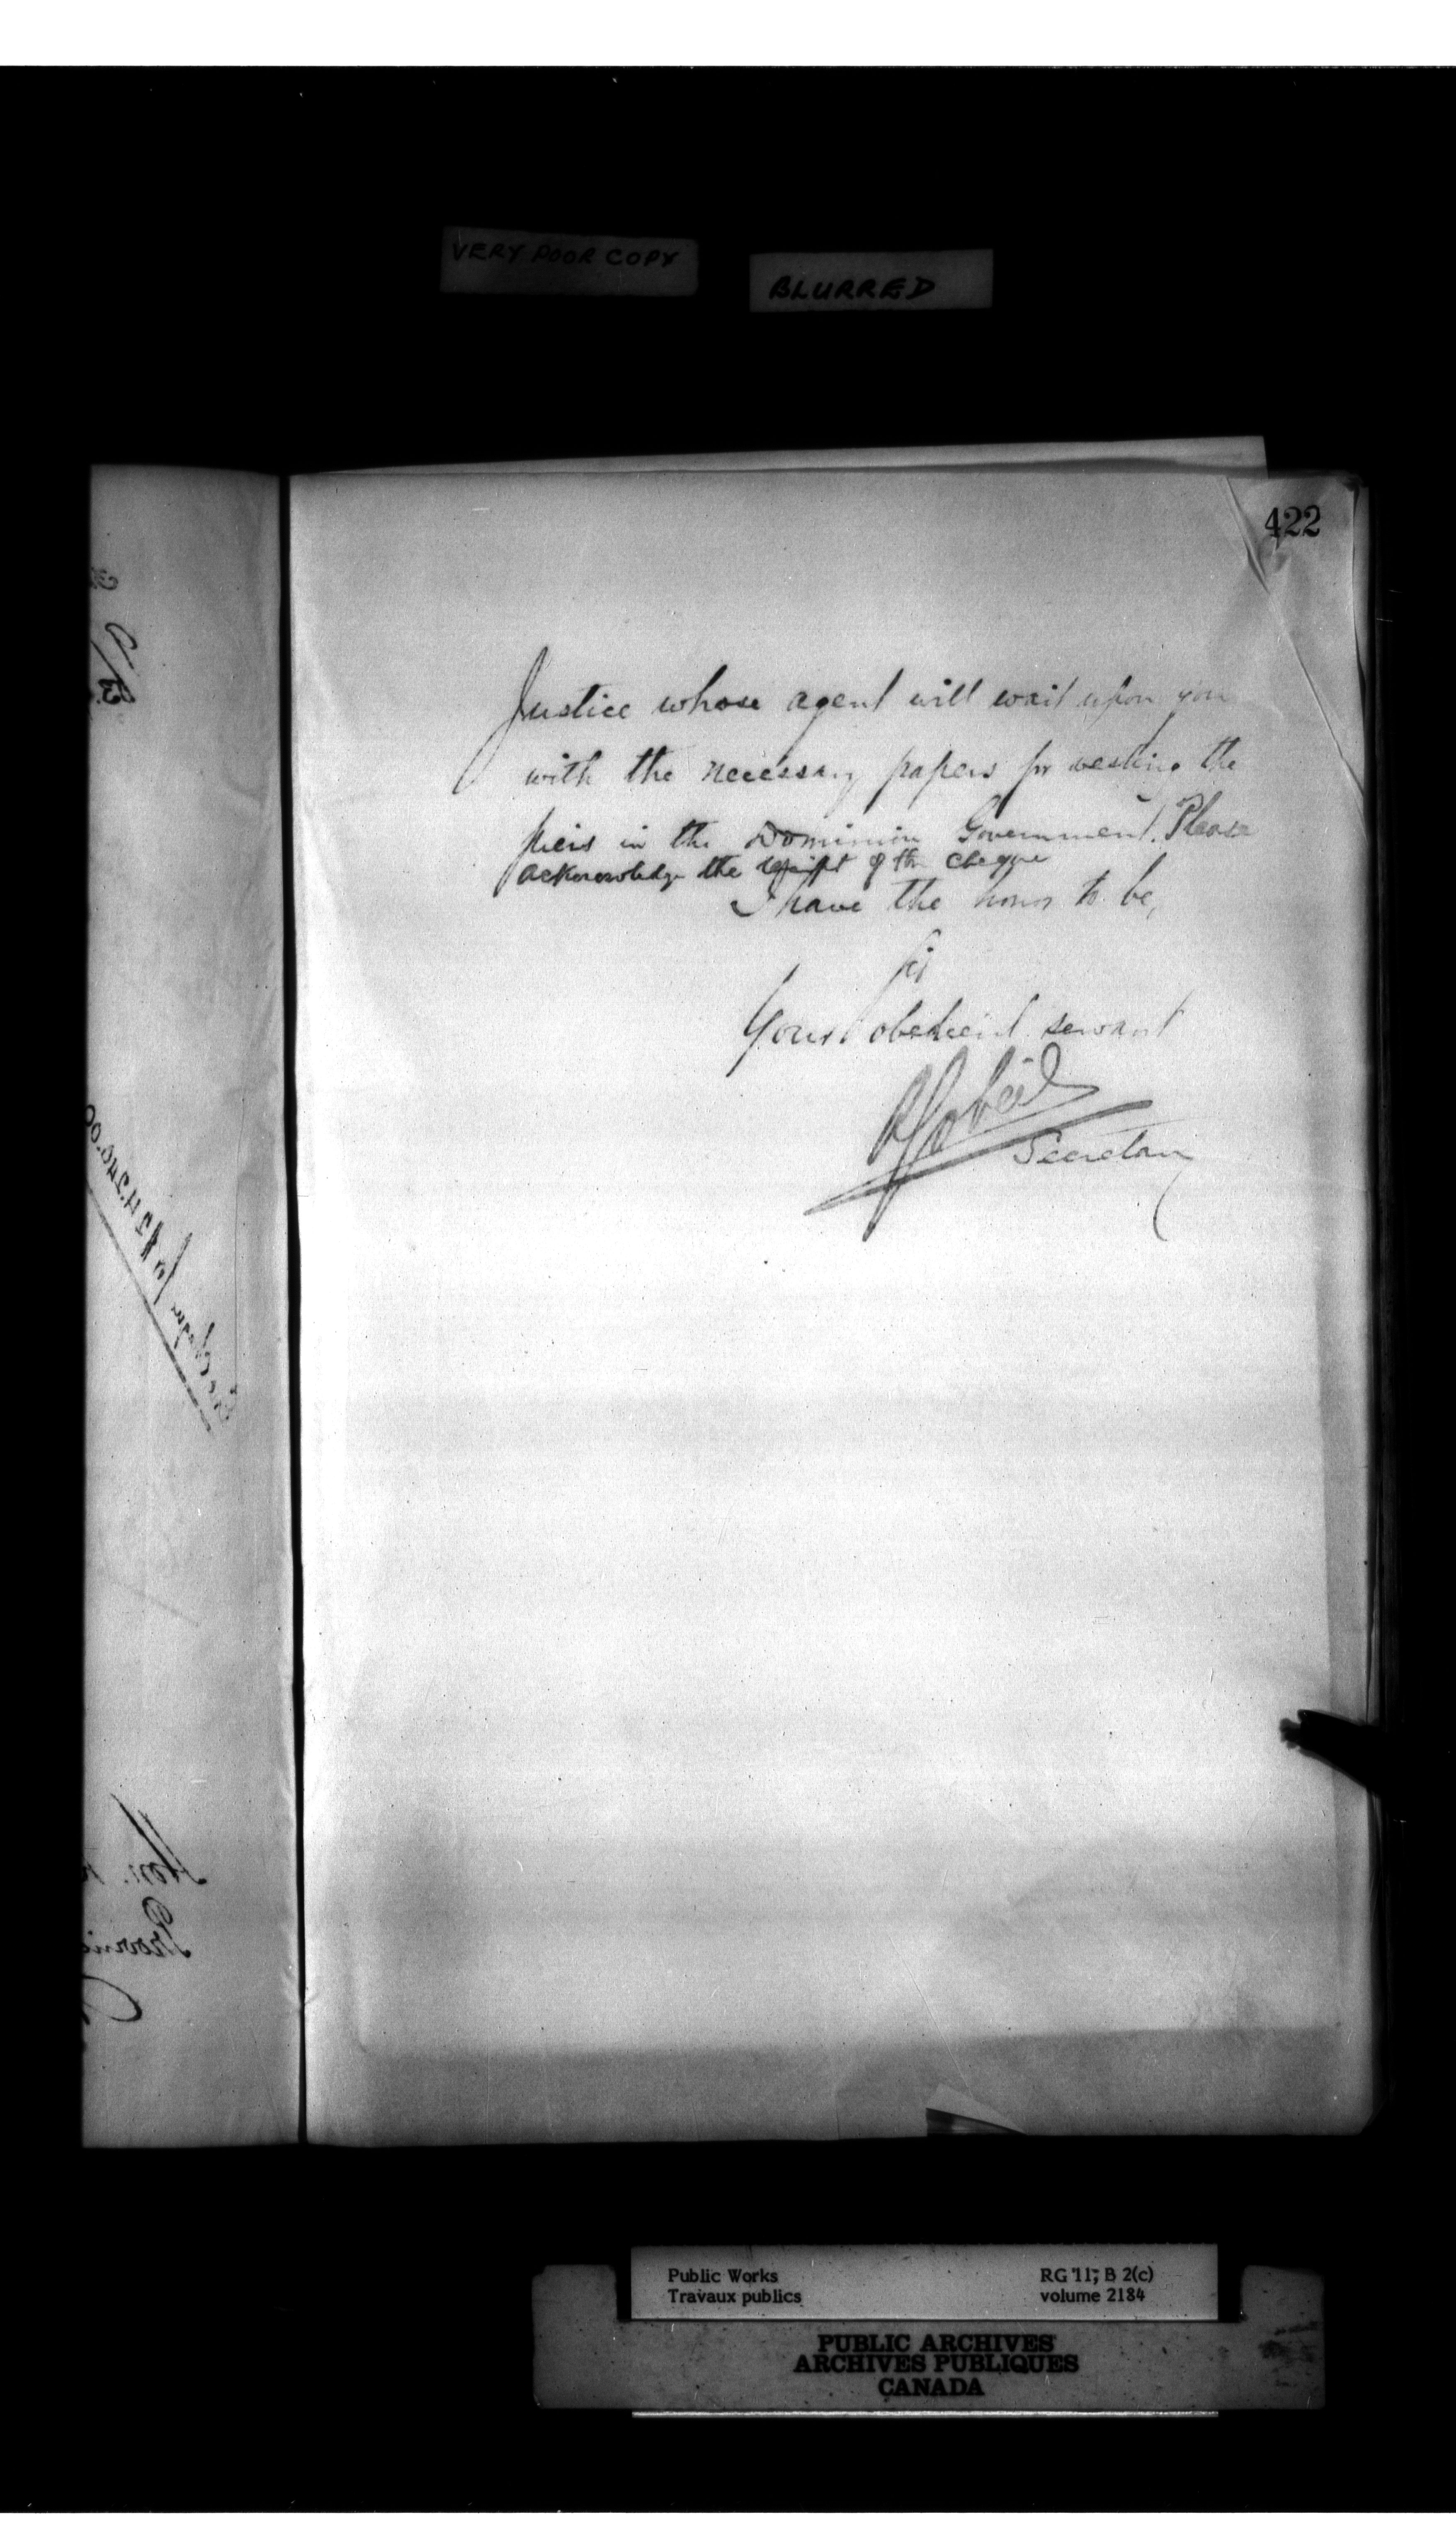 VERY POOR COPY
BLURRED
422
Justice whose agent will wait upon you
with the necessary papers for vesting the
piers in the Dominion Government. Please
acknowledge the receipt of the cheque
I have the honor to be,
Sir
Your obedient servant
Secretary
Hon.
Public Works
Travaux publics
RG 11, B 2(c)
volume 2184
PUBLIC ARCHIVES
ARCHIVES PUBLIQUES
CANADA